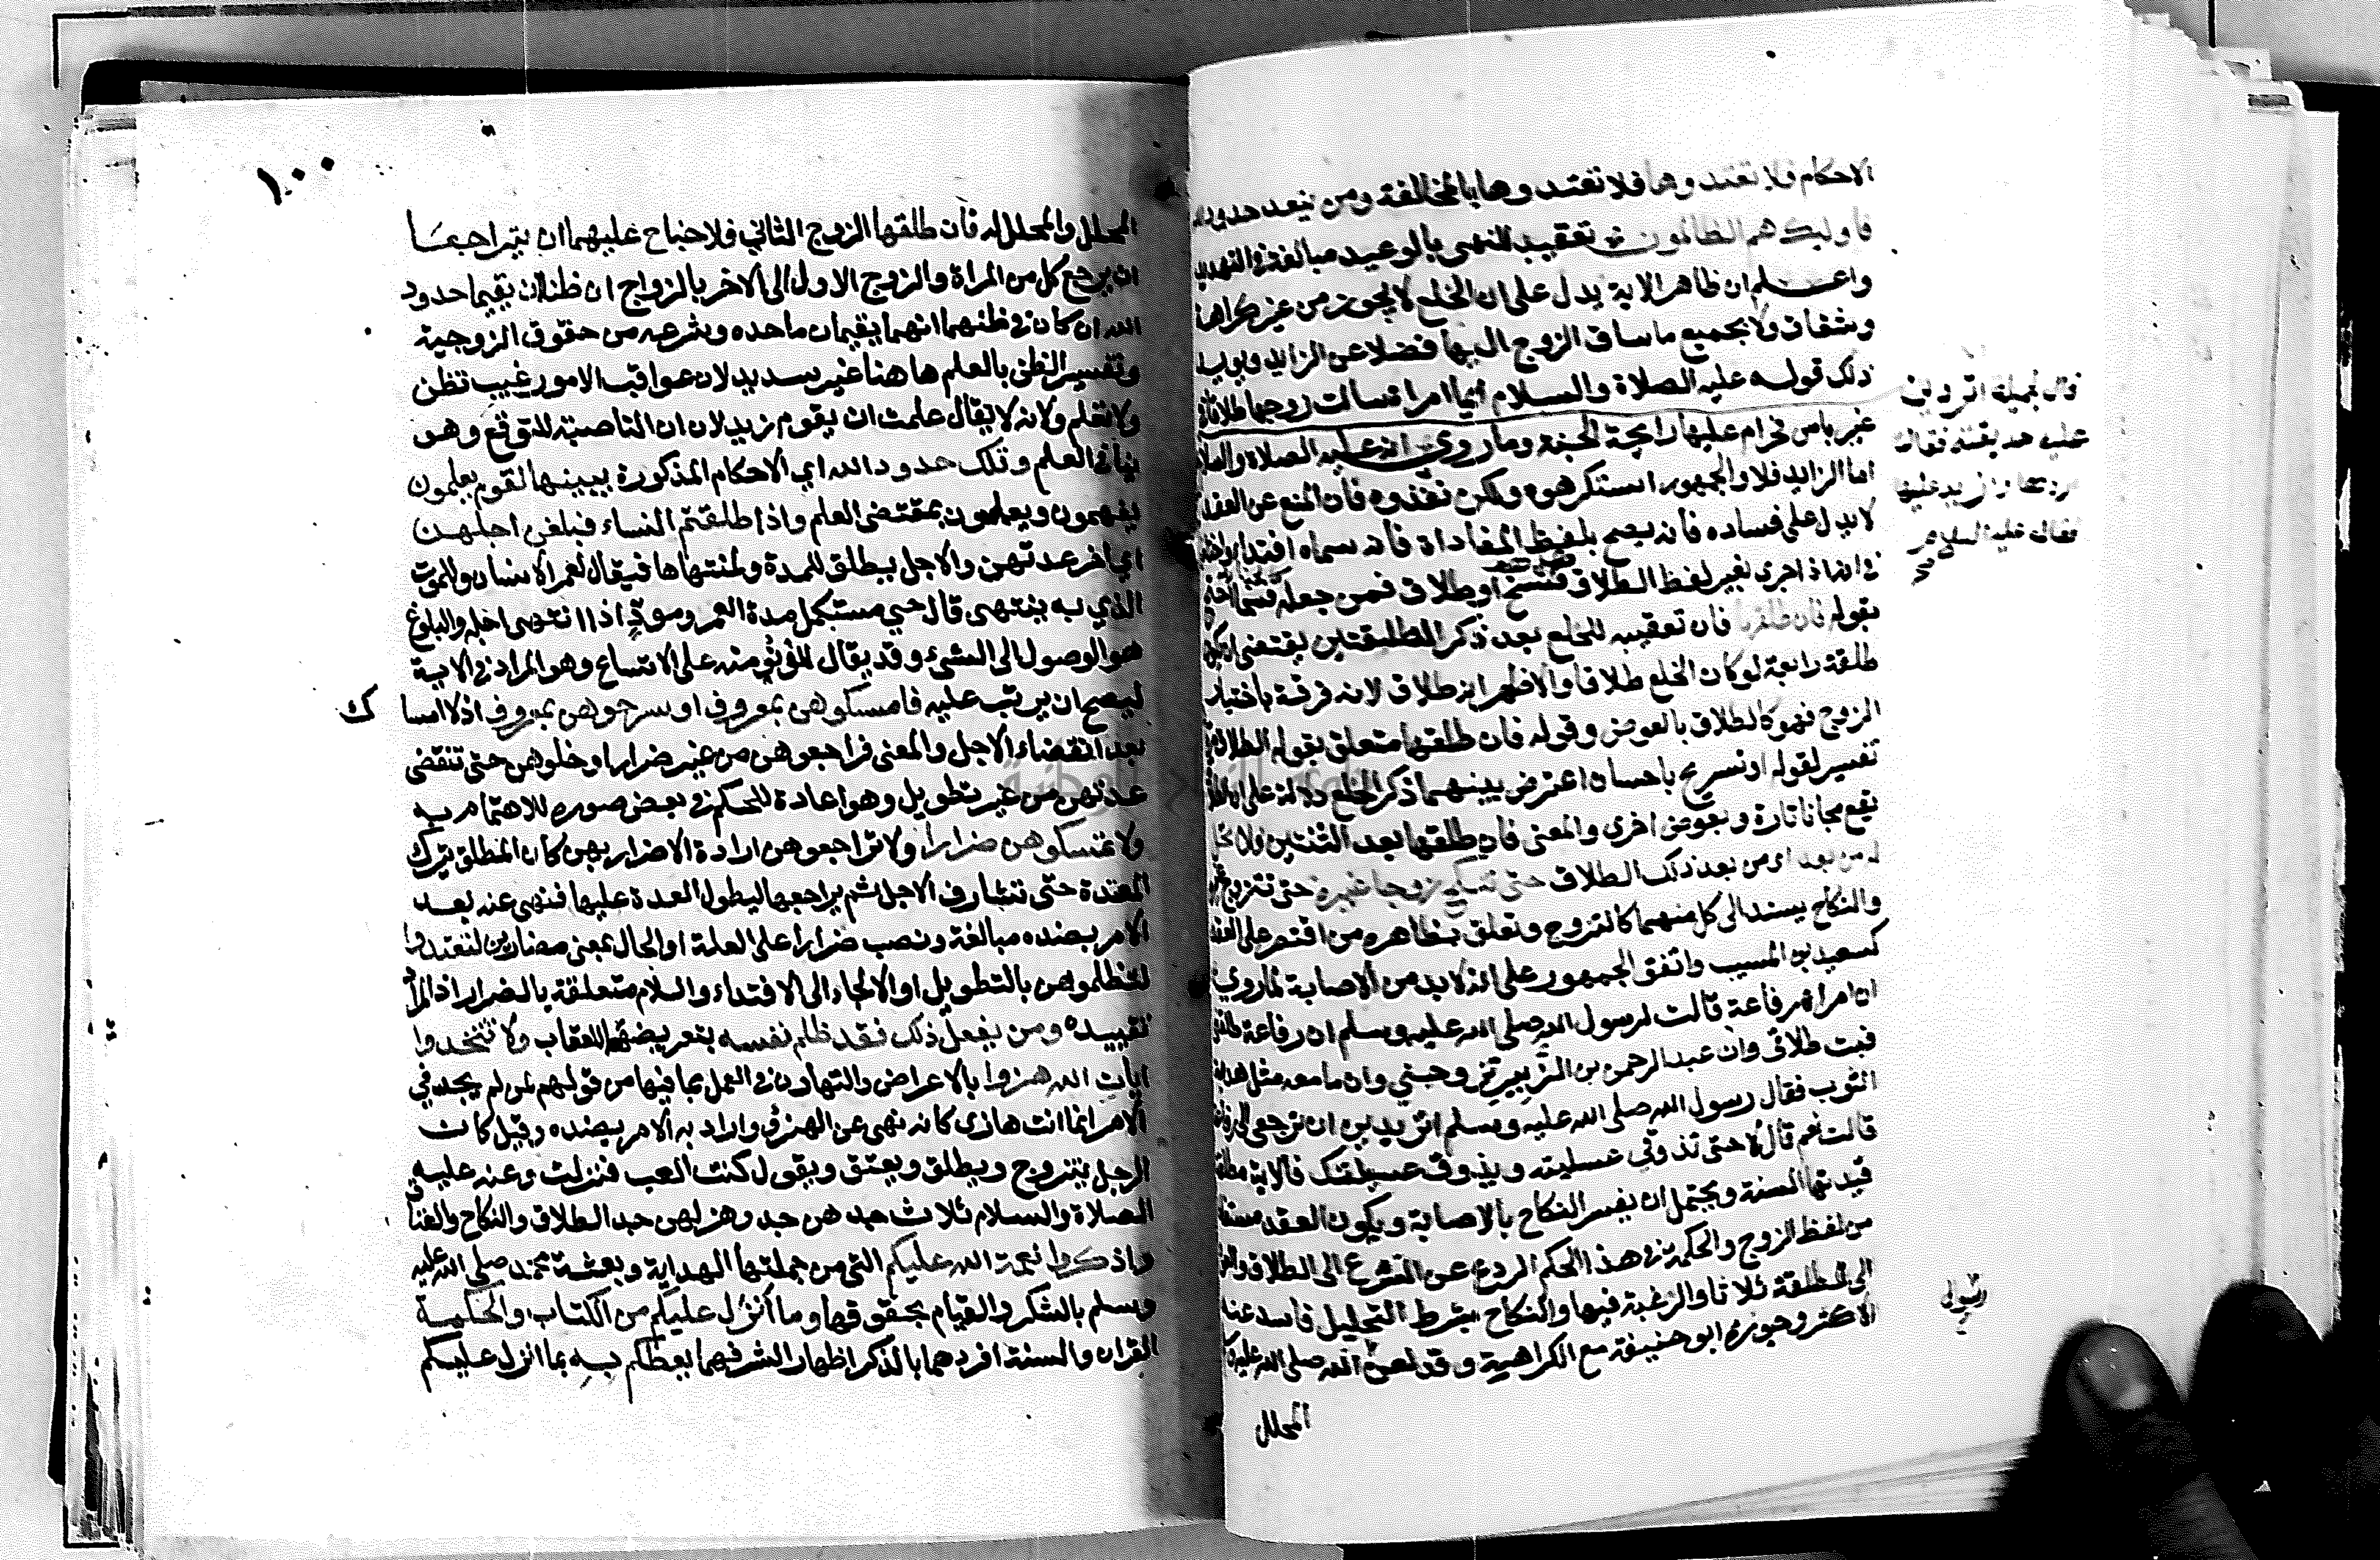 الاحكام فلا تعتدوها فلا تعتدوها بالمخالفة ومن يتعد حدود الله
فاوليك هم الظالمون تعقيب للنهي بالوعيد مبالغة في التهديد
واعلم ان ظاهر الاية يدل على ان الخلع لا يجوز من غير كراهة
وشقاق ولا بجميع ما ساق الزوج اليها فضلا عن الزايد ويويد
ذلك قوله عليه الصلاة والسلام ايما امراة سالت زوجها طلاقا في
غير باس فحرام عليها رايحة الجنة وما روي انه عليه الصلاة والسلام
قال لجميلة اتردين
عليه حديقته فقالت
اردها وازيد عليها
فقال عليه السلام
اما الزايد فلا والجمهور استكرهوه ولكن نفذوه فان المنع عن العقد
لا يدل على فساده فانه يصح بلفظ المفاداة فانه سماه افتدا واختلف
في انه اذا جرى بغير لفظ الطلاق فسخ او طلاق فمن جعله فسخا احتج
بقوله فان طلقها فان تعقيبه للخلع بعد ذكر الطلقتين يقتضي ان يكون
طلقة رابعة لو كان الخلع طلاقا والاظهر انه طلاق لانه فرقة باختيار
الزوج فهو كالطلاق بالعوض وقوله فان طلقها متعلق بقوله الطلاق مرتان
تفسير لقوله او تسريح باحسان اعترض بينهما ذكر الخلع دلالة على ان الطلاق
يقع مجانا تارة وبعوض اخرى والمعنى فان طلقها بعد الثنتين فلا تحل
له من بعد اي من بعد ذلك الطلاق حتى تنكح زوجا غيره حتى تتزوج غيره
والنكاح يسند الى كل منهما كالتزوج وتعلق بظاهره من اقتصر على العقد
كسعيد بن المسيب واتفق الجمهور على انه لا بد من الاصابة لما روي
ان امراة رفاعة قالت لرسول الله صلى الله عليه وسلم ان رفاعة طلقني
فبت طلاقي وان عبد الرحمن بن الزبير تزوجني وان ما معه مثل هدبة
الثوب فقال رسول الله صلى الله عليه وسلم اتريدين ان ترجعي الى رفاعة
قالت نعم قال لا حتى تذوقي عسيلته ويذوق عسيلتك فالاية مطلقة
قيدتها السنة ويحتمل ان يفسر النكاح بالاصابة ويكون العقد مستفادا
من لفظ الزوج والحكمة في هذا الحكم الردع عن التسرع الى الطلاق والعود
الى المطلقة ثلاثا والرغبة فيها والنكاح بشرط التحليل فاسد عند
الاكثر وجوزه ابو حنيفة مع الكراهية وقد لعن الله صلى الله عليه وسلم
رسول
المحلل
١٠٠
المحلل والمحلل له فان طلقها الزوج الثاني فلا جناح عليهما ان يتراجعا
ان يرجع كل من المراة والزوج الاول الى الاخر بالزواج ان ظنا ان يقيما حدود
الله ان كان في ظنهما انهما يقيمان ما حده وشرعه من حقوق الزوجية
وتفسير الظن بالعلم هاهنا غير سديد لان عواقب الامور غيب تظن
ولا تعلم ولانه لا يقال علمت ان يقوم زيد لان ان الناصبة للتوقع وهو
ينافي العلم وتلك حدود الله اي الاحكام المذكورة يبينها لقوم يعلمون
يفهمون ويعلمون بمقتضى العلم واذا طلقتم النساء فبلغن اجلهن
اي اخر عدتهن والاجل يطلق للمدة ولمنتهاها فيقال لعمر الانسان وللموت
الذي به ينتهي قال حي مستكمل مدة العمر ومود اذا انتهى اجله والبلوغ
هو الوصول الى الشيء وقد يقال للدنو منه على الاتساع وهو المراد في الاية
ليصح ان يرتب عليه فامسكوهن بمعروف او سرحوهن بمعروف اذ لا امسا
ك
بعد انقضاء الاجل والمعنى فراجعوهن من غير ضرار او خلوهن حتى تنقضي
عدتهن من غير تطويل وهو اعادة للحكم في بعض صوره للاهتمام به
ولا تمسكوهن ضرارا ولا تراجعوهن ارادة الاضرار بهن كان المطلق يترك
المعتدة حتى تشارف الاجل ثم يراجعها ليطول العدة عليها فنهي عنه بعد
الامر بضده مبالغة ونصب ضرارا على العلة او الحال بمعنى مضارين لتعتدوا
لتظلموهن بالتطويل او الالجاء الى الافتداء واللام متعلقة بالضرار اذ المراد
تقييده ومن يفعل ذلك فقد ظلم نفسه بتعريضها للعقاب ولا تتخذوا
ايات الله هزوا بالاعراض والتهاون في العمل بما فيها من قولهم لمن لم يجد في
الامر انما انت هازي كانه نهى عن الهزؤ واراد به الامر بضده وقيل كان
الرجل يتزوج ويطلق ويعتق ويقول كنت العب فنزلت وعنه عليه
الصلاة والسلام ثلاث جدهن جد وهزلهن جد الطلاق والنكاح والعتاق
واذكروا نعمة الله عليكم التي من جملتها الهداية وبعثة محمد صلى الله عليه
وسلم بالشكر والقيام بحقوقها وما انزل عليكم من الكتاب والحكمة
القران والسنة افردهما بالذكر اظهارا لشرفهما يعظكم به بما انزل عليكم